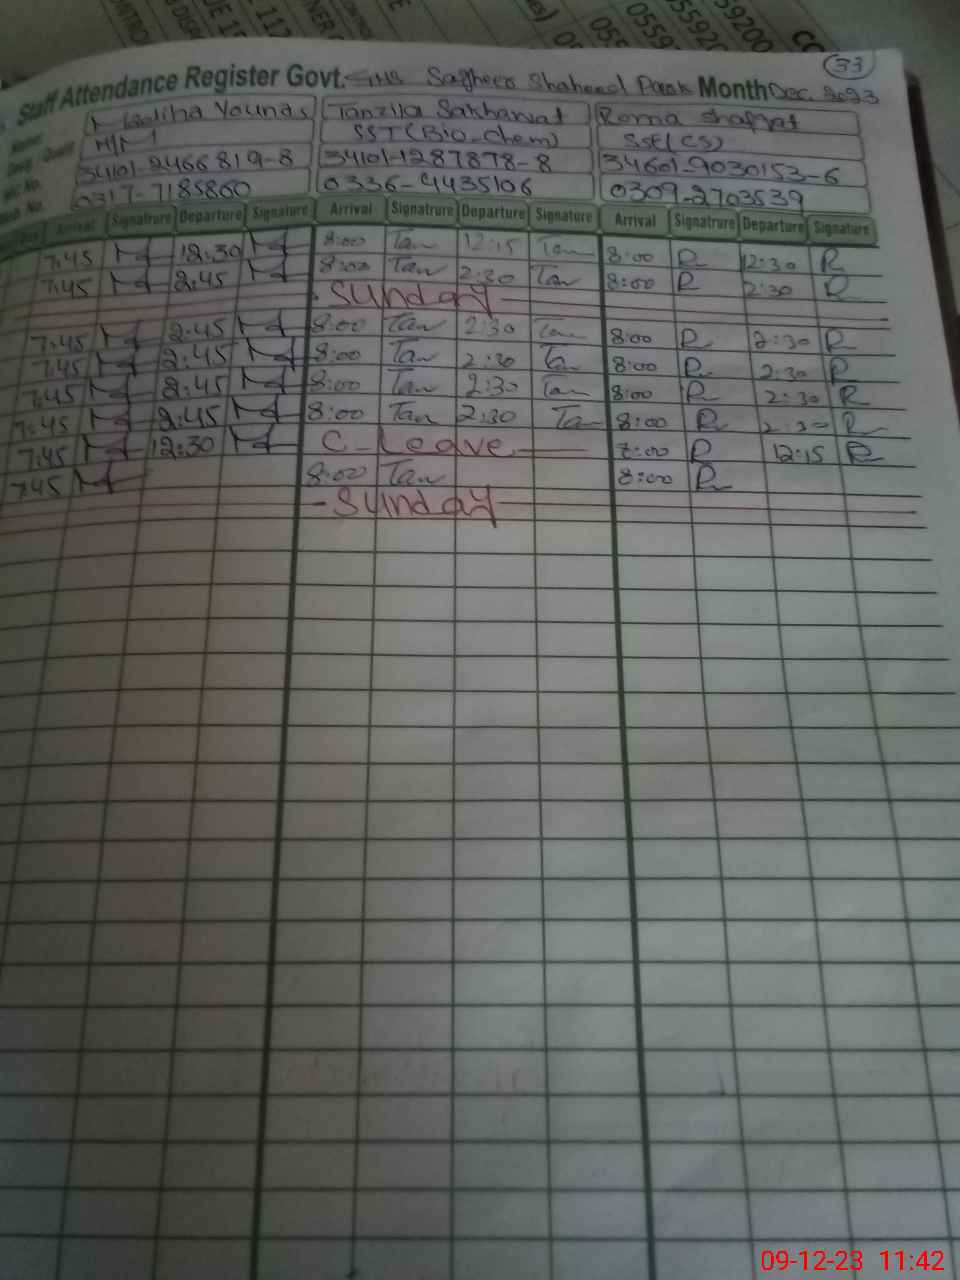 CONTRO
0559200
(33)
Staff Attendance Register Govt. GHS Sagheer Shaheed Park Month Dec. 2023
Maliha Younas Tanzila Sakhawat Roma Shafqat
H/M SST (Bio-chem) SSE (CS)
34101-2466819-8 34101-1287878-8 34601-9030153-6
Mob No. 0317-7185860 0336-4435106 0309-2703539
Arrival Signatrure Departure Signature Arrival Signatrure Departure Signature Arrival Signatrure Departure Signature
7:45 M 12:30 M 8:00 Tan 12:15 Tan 8:00 R 12:30 R
7:45 M 2:45 M 8:00 Tan 2:30 Tan 8:00 R 2:30 R
- Sunday
7:45 M 2:45 M 8:00 Tan 2:30 Tan 8:00 R 2:30 R
7:45 M 2:45 M 8:00 Tan 2:30 Tan 8:00 R 2:30 R
7:45 M 2:45 M 8:00 Tan 2:30 Tan 8:00 R 2:30 R
7:45 M 2:45 M 8:00 Tan 2:30 Tan 8:00 R 2:30 R
7:45 M 12:30 M C- Leave 8:00 R 12:15 R
7:45 M 8:00 Tan 8:00 R
- Sunday
09-12-23 11:42